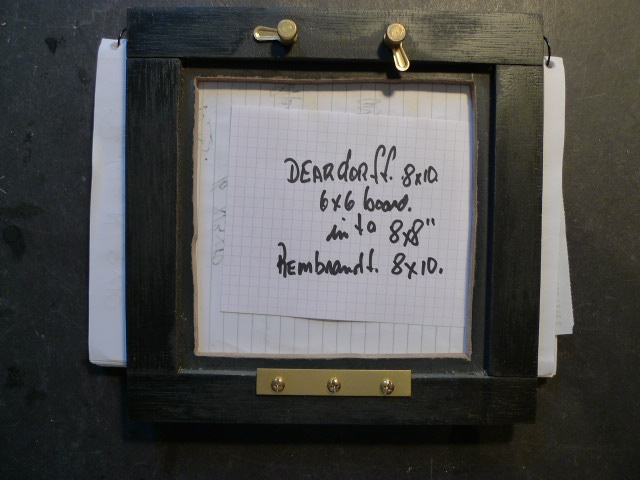 DEARdorff. 8x10.
6x6 board.
into 8x8"
Rembrandt. 8x10.